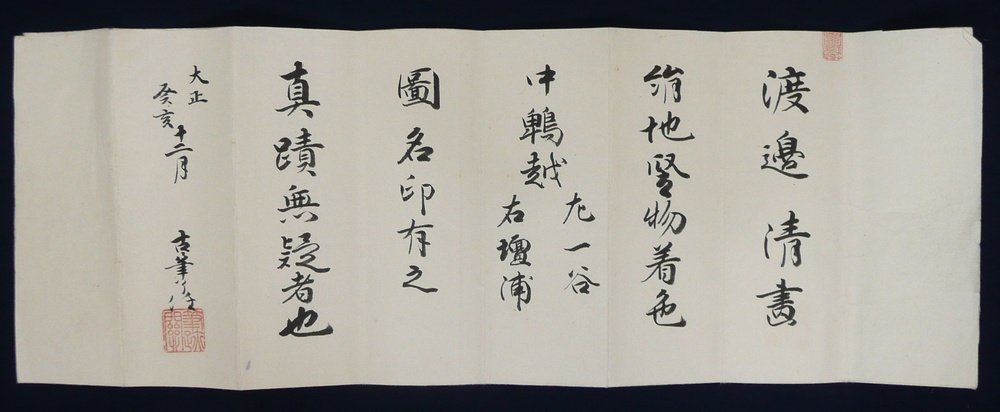 渡邊清畫
絹地竪物着色
中鵯越
左一谷
右壇浦
圖名印有之
真蹟無疑者也
大正
癸亥十二月
古筆了